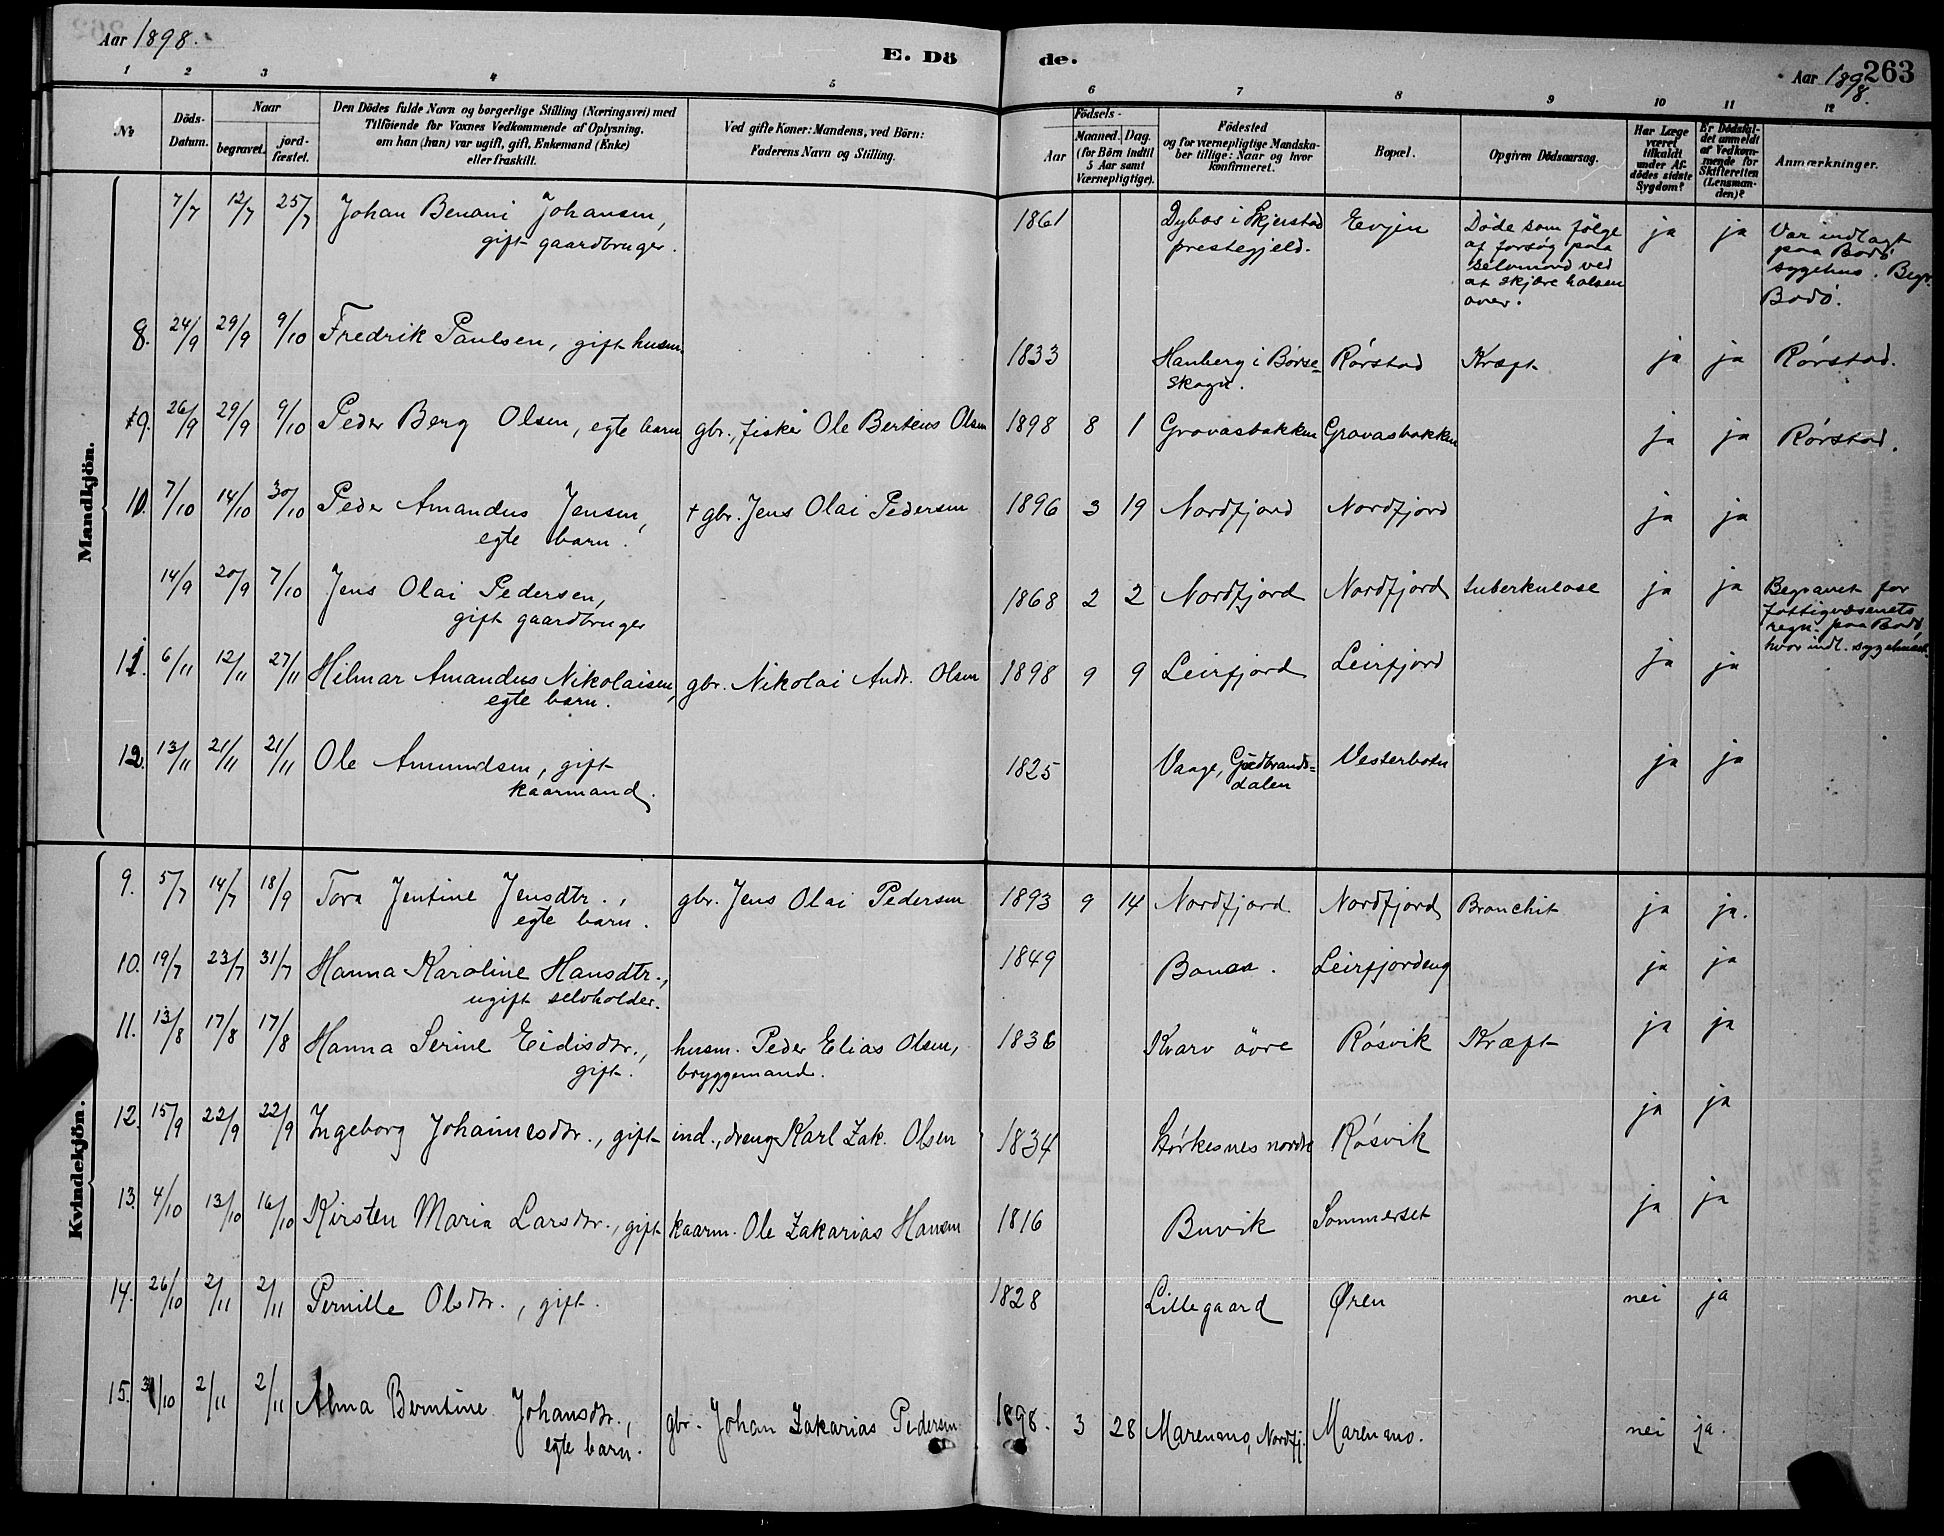 Aar 1898.
E. Dö de.
Aar 1898. 263
1 2 3 4 5 6 7 8 9 10 11 12
No
Döds-Datum.
Naar
begravet.
jord-fæstet.
Den Dödes fulde Navn og borgerlige Stilling (Næringsvei) med
Tilföiende for Voxnes Vedkommende af Oplysning,
om han (hun) var ugift, gift, Enkemand (Enke)
eller fraskilt.
Ved gifte Koner: Mandens, ved Börn:
Faderens Navn og Stilling.
Födsels-
Aar
Maaned. Dag.
(for Börn indtil
5 Aar samt
Værnepligtige).
Födested
og for værnepligtige Mandska-
ber tillige: Naar og hvor
konfirmeret.
Bopæl.
Opgiven Dödsaarsag.
Har Læge
været
tilkaldt
under Af-
dödes sidste
Sygdom?
Er Dödsfal-
det anmeldt
af Vedkom-
mende for
Skifteretten
(Lensman-
den)?
Anmærkninger.
Mandkjön.
7/7 12/7 25/7 Johan Benoni Johansen, 1861 Dybos i Skjerstad Evjen Døde som følge ja ja Var indlagt
gift gaardbruger. prestegjeld. af forsøg paa paa Bodø
selvmord ved sygehus. Begr.
at skjære halsen Bodø.
over.
8. 24/9 29/9 9/10 Fredrik Paulsen, gift husm. 1833 Hanberg i Børse- Rørstad Kræft ja ja Rørstad.
skogn.
9. 26/9 29/9 9/10 Peder Berg Olsen, egte barn gbr., fisker Ole Berteus Olsen 1898 8 1 Grovasbakken Grovasbakken ja ja Rørstad.
10. 7/10 14/10 30/10 Peder Amandus Jensen, + gbr. Jens Olai Pedersen 1896 3 19 Nordfjord Nordfjord ja ja
egte barn.
14/9 20/9 7/10 Jens Olai Pedersen, 1868 2 2 Nordfjord Nordfjord tuberkulose ja ja Begravet for
gift gaardbruger fattigvæsenets
regn. paa Bodø,
hvor indl.
11. 6/11 12/11 27/11 Hilmar Amandus Nikolaisen, gbr. Nikolai Andr. Olsen 1898 9 9 Leirfjord Leirfjord ja ja
egte barn.
12. 13/11 21/11 21/11 Ole Amundsen, gift 1825 Vaage, Gudbrands- Vesterbotn ja ja
kaarmand. dalen
Kvindekjön.
9. 5/7 14/7 18/9 Tora Jentine Jensdtr., gbr. Jens Olai Pedersen 1893 9 14 Nordfjord Nordfjord Bronchit ja ja.
egte barn.
10. 19/7 23/7 31/7 Hanna Karoline Hansdtr., 1849 Bonaa. Leirfjordeng ja ja
ugift selvholder.
11. 13/8 17/8 17/8 Hanna Serine Eidisdtr., husm. Peder Elias Olsen, 1836 Kvarv övre Røsvik Kræft ja ja
gift. bryggemand.
12. 15/9 22/9 22/9 Ingeborg Johannesdtr., gift ind., dreng Karl Zak. Olsen 1834 Størkesnes nordre Røsvik ja ja
13. 4/10 13/10 16/10 Kirsten Maria Larsdtr., gift kaarm. Ole Zakarias Hansen 1816 Buvik Sommerset ja ja
14. 26/10 2/11 2/11 Pernille Olsdtr., gift. 1828 Lillegaard Øren nei ja
15. 31/10 2/11 2/11 Alma Berntine Johansdtr., gbr. Johan Zakarias Pedersen 1898. 3 28 Marenmo, Nordfj. Marenmo. nei ja.
egte barn.